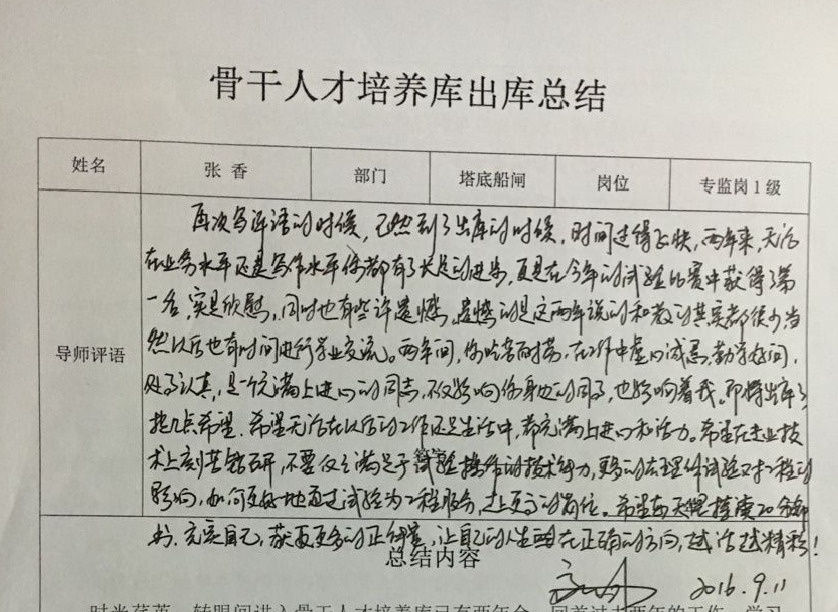 骨干人才培养库出库总结
姓名 张 香 部门 塔底船闸 岗位 专监岗1级
导师评语
再次写评语的时候，已然到了出库的时候。时间过得飞快，两年来，无论
在业务水平还是写作水平你都有了长足的进步，更是在今年的试验比赛中获得了第
一名，实是欣慰。同时也有些许遗憾，遗憾的是这两年说的和教的其实都很少，当
然以后也有时间进行学业交流。两年间，你吃苦耐劳，在工作中虚心诚恳，勤学好问，
处事认真，是一个充满上进心的同志，不仅影响你身边的同事，也影响着我。即将出库了，
提几点希望。希望无论在以后的工作还是生活中，都充满上进心和活力。希望在专业技
术上刻苦钻研，不要仅仅满足于试验操作的技术能力，更多的去理解试验对工程的
影响，如何更好地通过试验为工程服务，走上更高的岗位。希望每天坚持读20分钟
书，充实自己，获取更多的正能量，让自己的人生在正确的方向，越活越精彩！
总结内容
2016.9.11
时光荏苒，转眼间进入骨干人才培养库已有两年余，回首过去两年的工作、学习